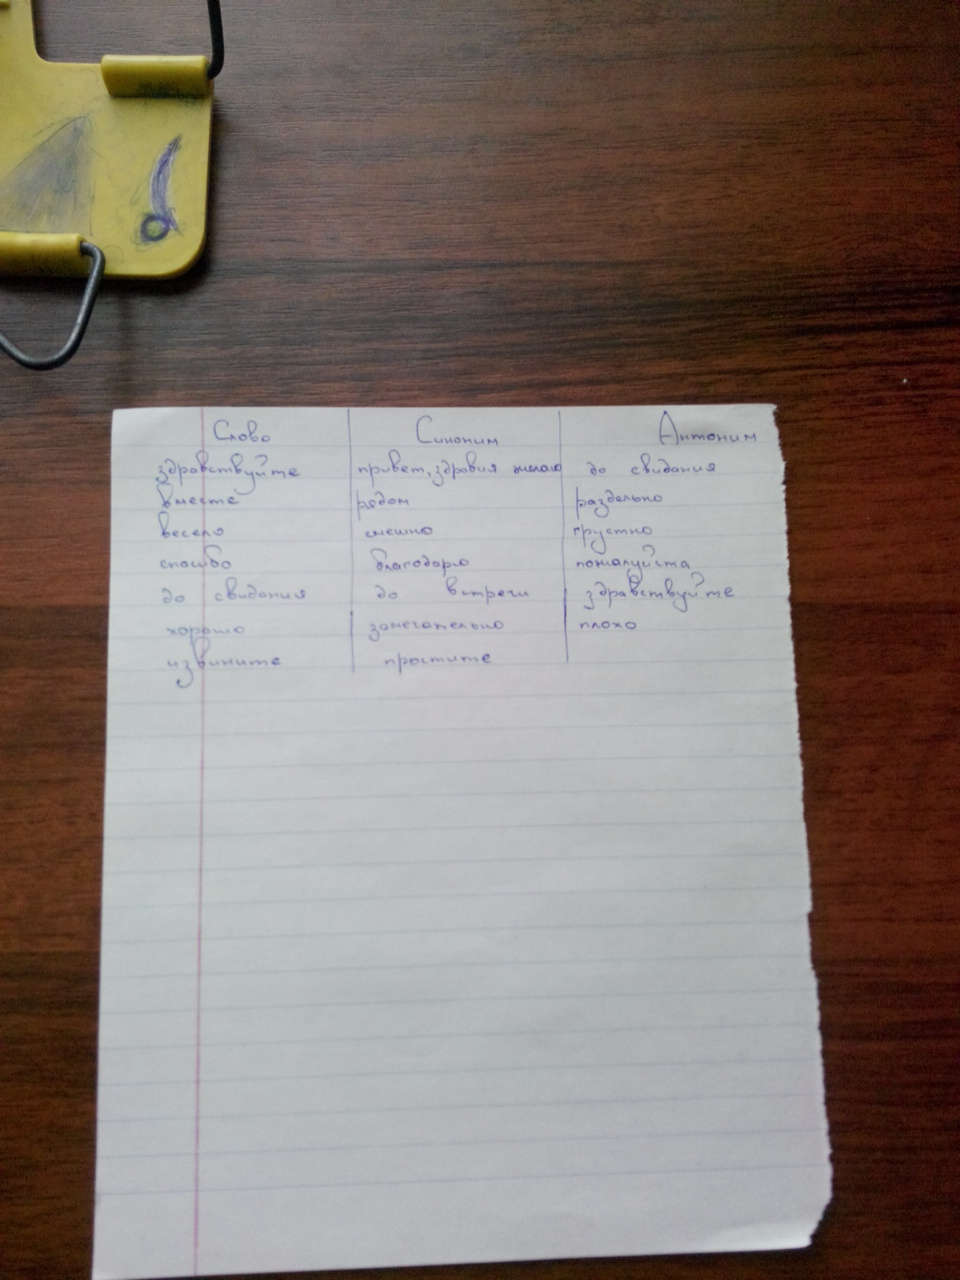 Слово Синоним Антоним
здравствуйте привет, здравия желаю до свидания
вместе рядом раздельно
весело смешно грустно
спасибо благодарю пожалуйста
до свидания до встречи здравствуйте
хорошо замечательно плохо
извините простите